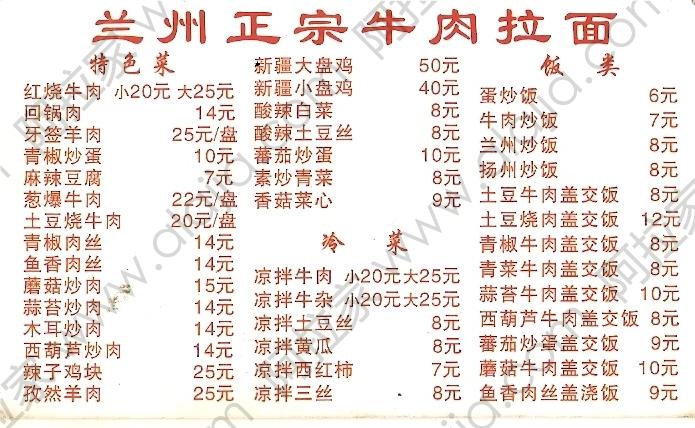 兰州正宗牛肉拉面
特色菜
红烧牛肉 小20元 大25元
回锅肉 14元
牙签羊肉 25元/盘
青椒炒蛋 10元
麻辣豆腐 7元
葱爆牛肉 22元/盘
土豆烧牛肉 20元/盘
青椒肉丝 14元
鱼香肉丝 14元
蘑菇炒肉 15元
蒜苔炒肉 14元
木耳炒肉 14元
西葫芦炒肉 14元
辣子鸡块 25元
孜然羊肉 25元
新疆大盘鸡 50元
新疆小盘鸡 40元
酸辣白菜 8元
酸辣土豆丝 8元
蕃茄炒蛋 10元
素炒青菜 8元
香菇菜心 9元
冷菜
凉拌牛肉 小20元大25元
凉拌牛杂 小20元大25元
凉拌土豆丝 8元
凉拌黄瓜 8元
凉拌西红柿 7元
凉拌三丝 8元
饭类
蛋炒饭 6元
牛肉炒饭 7元
兰州炒饭 8元
扬州炒饭 8元
土豆牛肉盖交饭 8元
土豆烧肉盖交饭 12元
青椒牛肉盖交饭 8元
青菜牛肉盖交饭 8元
蒜苔牛肉盖交饭 10元
西葫芦牛肉盖交饭 8元
蕃茄炒蛋盖交饭 9元
蘑菇牛肉盖交饭 10元
鱼香肉丝盖浇饭 9元
阿拉家 www.dkujia.com